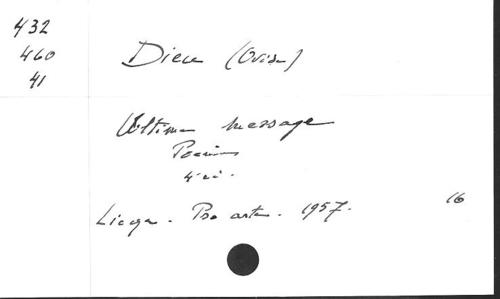 432
460
41
Dieu (Ovide)
Ultime message
Poèmes
4° éd.
Liège. Pro arte. 1957.
16